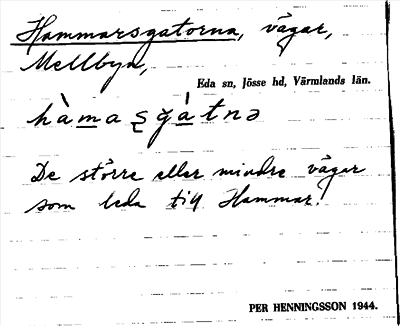 Hammarsgatorna, vägar,
Mellbyn,
Eda sn, Jösse hd, Värmlands län.
hàmaʂgàtnə
De större eller mindre vägar
som leda till Hammar!
PER HENNINGSSON 1944.